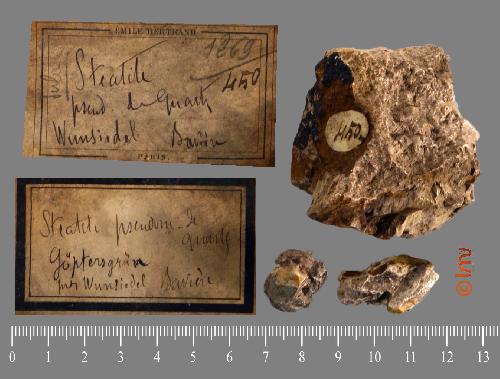 EMILE BERTRAND
1269
Steatite
450
pseud de Quartz
Wunsiedel Bavière
PARIS.
Steatite pseudom. de
quartz
Göpfersgrün
près Wunsiedel Bavière
450
0 1 2 3 4 5 6 7 8 9 10 11 12 13